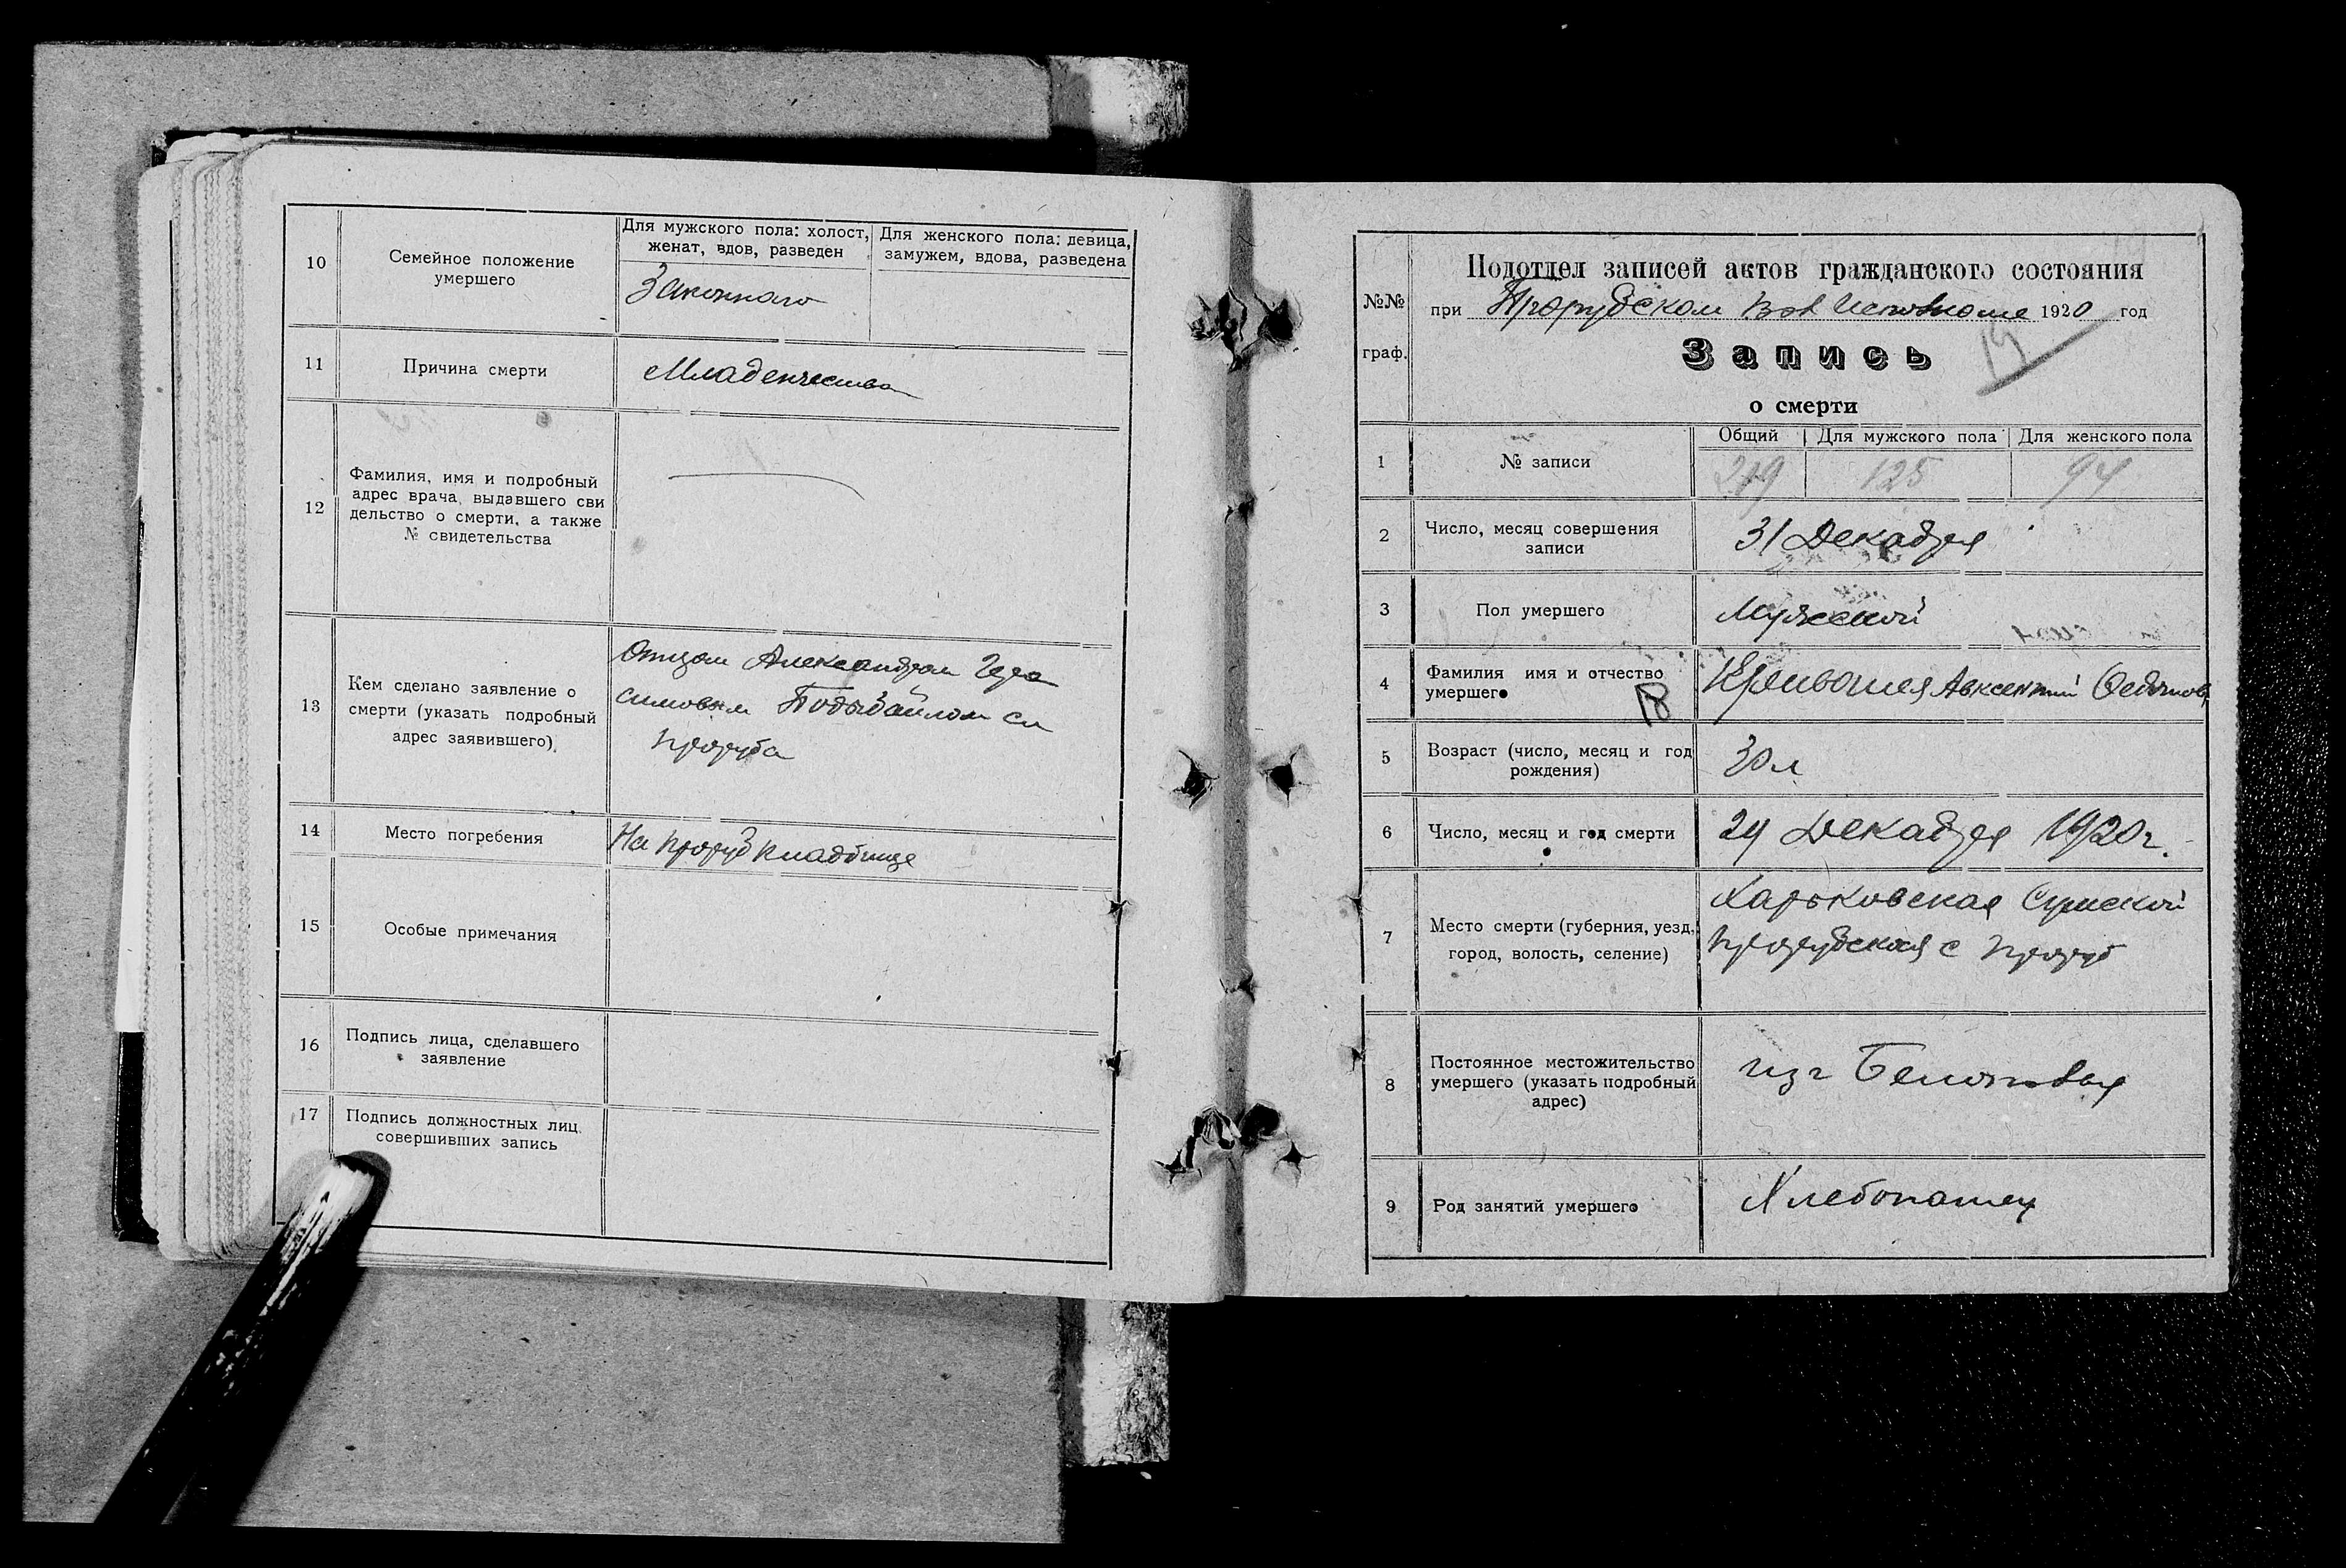 10
Семейное положение
умершего
Для мужского пола: холост,
женат, вдов, разведен
Для женского пола: девица,
замужем, вдова, разведена
Законного
11
Причина смерти
Младенчества
12
Фамилия, имя и подробный
адрес врача, выдавшего сви
дельство о смерти, а также
№ свидетельства
13
Кем сделано заявление о
смерти (указать подробный
адрес заявившего).
Отцом Александром Гера
симовым сл
Проруба
14
Место погребения
На Проруб кладбище
15
Особые примечания
16
Подпись лица, сделавшего
заявление
17
Подпись должностных лиц
совершивших запись
№№
граф.
Подотдел записей актов гражданского состояния
при Прорубском Вол Исполкоме 1920 год
19
Запись
о смерти
1
№ записи
Общий
Для мужского пола
Для женского пола
219
125
94
2
Число, месяц совершения
записи
31 Декабря
3
Пол умершего
Мужской
4
Фамилия имя и отчество
умершего
Авксентий
5
Возраст (число, месяц и год
рождения)
30 л
6
Число, месяц и год смерти
24 Декабря 1920 г.
7
Место смерти (губерния, уезд,
город, волость, селение)
Харьковская Сумской
Прорубская с Проруб
8
Постоянное местожительство
умершего (указать подробный
адрес)
9
Род занятий умершего
Хлебопашец